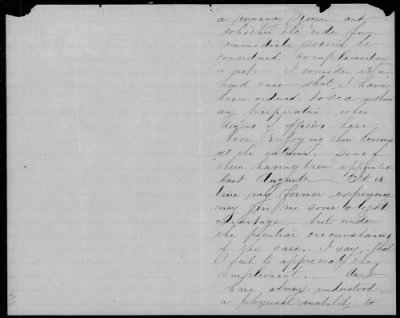 and
whether the order for
immediate service be
considered complimentary
or not — I consider it a
hard case — that I have
been ordered to sea without
any preparation — when
dozens of officers have
been enjoying their leisure
all the autumn. Some of
them having been appointed
last August — It is
true my former experience
may give me some slight
advantage — but under
the peculiar circumstances
of the case. I say, that
I fail to appreciate the
compliment.
have always understood
a physical inability to